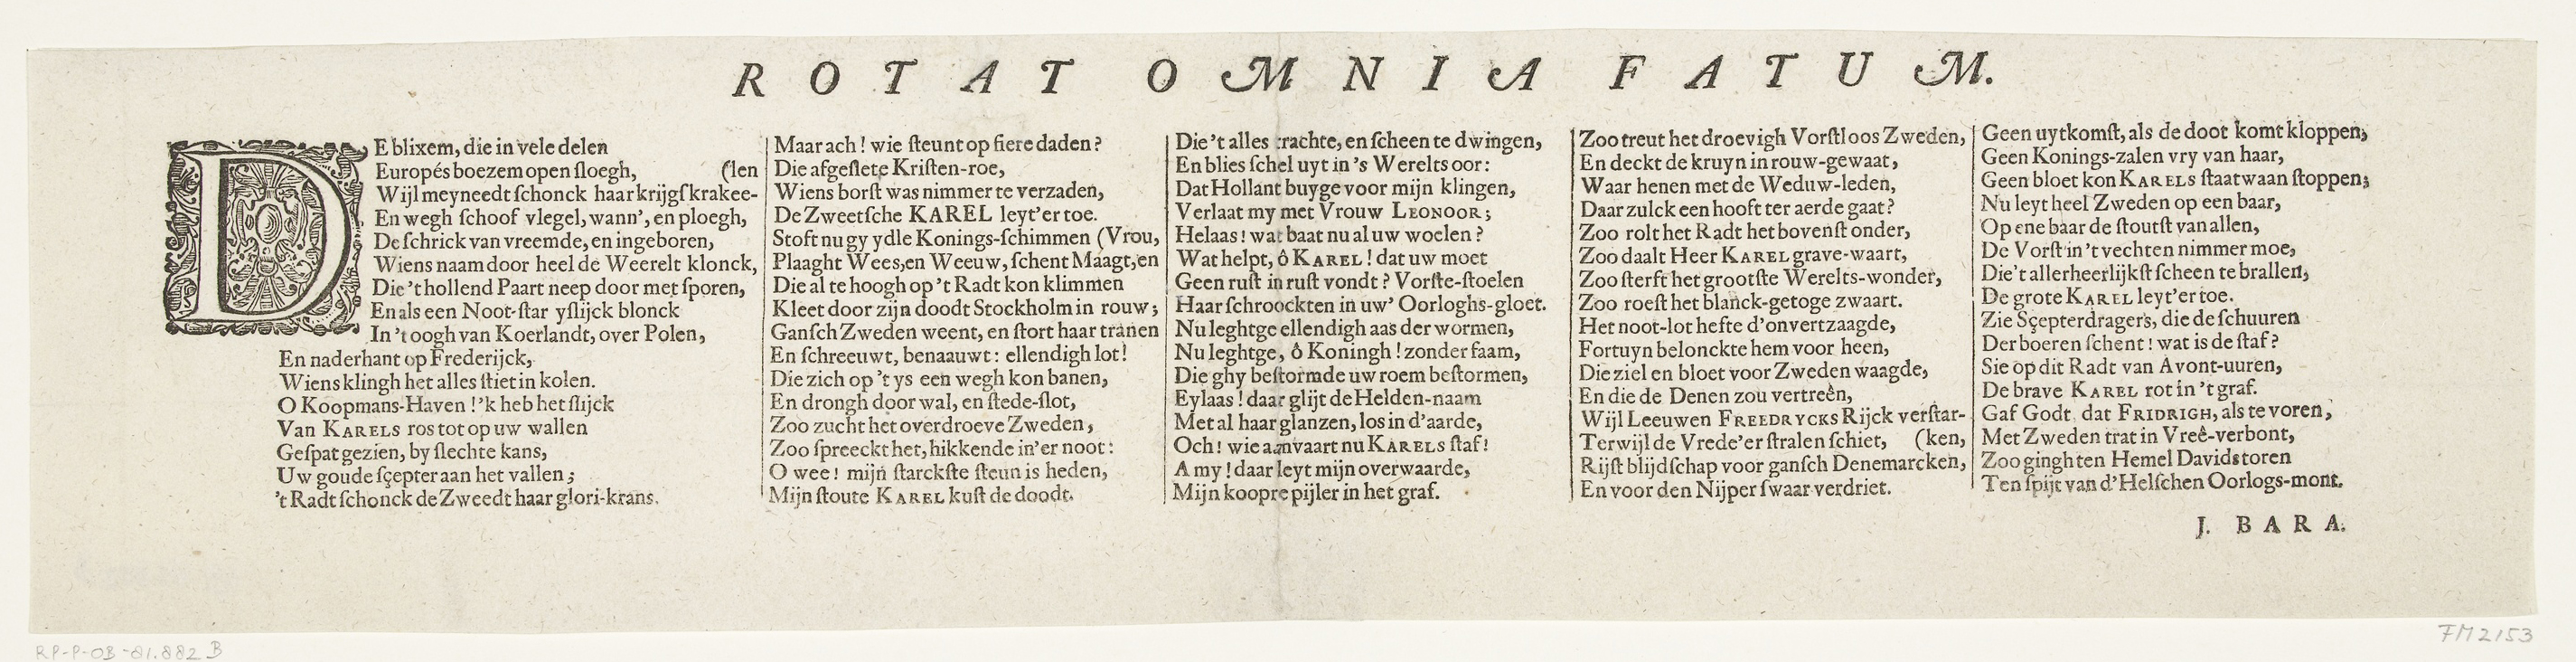 ROTAT OMNIA FATUM.
DE blixem, die in vele delen
Europés boezem open ſloegh, (len
Wijl meyneedt ſchonck haar krijgſkrakee-
En wegh ſchoof vlegel, wann', en ploegh,
De ſchrick van vreemde, en ingeboren,
Wiens naam door heel de Weerelt klonck,
Die 't hollend Paart neep door met ſporen,
En als een Noot-ſtar yſlijck blonck
In 't oogh van Koerlandt, over Polen,
En naderhant op Frederijck,
Wiens klingh het alles ſtiet in kolen.
O Koopmans-Haven! 'k heb het ſlijck
Van KARELS ros tot op uw wallen
Geſpat gezien, by ſlechte kans,
Uw goude ſçepter aan het vallen;
't Radt ſchonck de Zweedt haar glori-krans.
Maar ach! wie ſteunt op fiere daden?
Die afgeſlete Kriſten-roe,
Wiens borſt was nimmer te verzaden,
De Zweetſche KAREL leyt'er toe.
Stoft nu gy ydle Konings-ſchimmen (Vrou,
Plaaght Wees, en Weeuw, ſchent Maagt, en
Die al te hoogh op 't Radt kon klimmen
Kleet door zijn doodt Stockholm in rouw;
Ganſch Zweden weent, en ſtort haar tranen
En ſchreeuwt, benaauwt: ellendigh lot!
Die zich op 't ys een wegh kon banen,
En drongh door wal, en ſtede-ſlot,
Zoo zucht het overdroeve Zweden,
Zoo ſpreeckt het, hikkende in'er noot:
O wee! mijn ſtarckſte ſteun is heden,
Mijn ſtoute KAREL kuſt de doodt.
Die 't alles trachte, en ſcheen te dwingen,
En blies ſchel uyt in 's Werelts oor:
Dat Hollant buyge voor mijn klingen,
Verlaat my met Vrouw LEONOOR;
Helaas! wat baat nu al uw woelen?
Wat helpt, ô KAREL! dat uw moet
Geen ruſt in ruſt vondt? Vorſte-ſtoelen
Haar ſchroockten in uw' Oorloghs-gloet.
Nu leght ge ellendigh aas der wormen,
Nu leght ge, ô Koningh! zonder faam,
Die ghy beſtormde uw roem beſtormen,
Eylaas! daar glijt de Helden-naam
Met al haar glanzen, los in d'aarde,
Och! wie aanvaart nu KARELS ſtaf!
A my! daar leyt mijn overwaarde,
Mijn koopre pijler in het graf.
Zoo treut het droevigh Vorſtloos Zweden,
En deckt de kruyn in rouw-gewaat,
Waar henen met de Weduw-leden,
Daar zulck een hooft ter aerde gaat?
Zoo rolt het Radt het bovenſt onder,
Zoo daalt Heer KAREL grave-waart,
Zoo ſterft het grootſte Werelts-wonder,
Zoo roeſt het blanck-getoge zwaart.
Het noot-lot hefte d'onvertzaagde,
Fortuyn belonckte hem voor heen,
Die ziel en bloet voor Zweden waagde,
En die de Denen zou vertreên,
Wijl Leeuwen FREEDRYCKS Rijck verſtar-
Terwijl de Vrede'er ſtralen ſchiet, (ken,
Rijſt blijdſchap voor ganſch Denemarcken,
En voor den Nijper ſwaar verdriet.
Geen uytkomſt, als de doot komt kloppen,
Geen Konings-zalen vry van haar,
Geen bloet kon KARELS ſtaatwaan ſtoppen;
Nu leyt heel Zweden op een baar,
Op ene baar de ſtoutſt van allen,
De Vorſt in 't vechten nimmer moe,
Die 't allerheerlijkſt ſcheen te brallen,
De grote KAREL leyt'er toe.
Zie Sçepterdragers, die de ſchuuren
Der boeren ſchent! wat is de ſtaf?
Sie op dit Radt van Avont-uuren,
De brave KAREL rot in 't graf.
Gaf Godt dat FRIDRIGH, als te voren,
Met Zweden trat in Vreê-verbont,
Zoo gingh ten Hemel Davids toren
Ten ſpijt van d'Helſchen Oorlogs-mont.
J. BARA.
RP-P-OB-81.882 B
FM2153